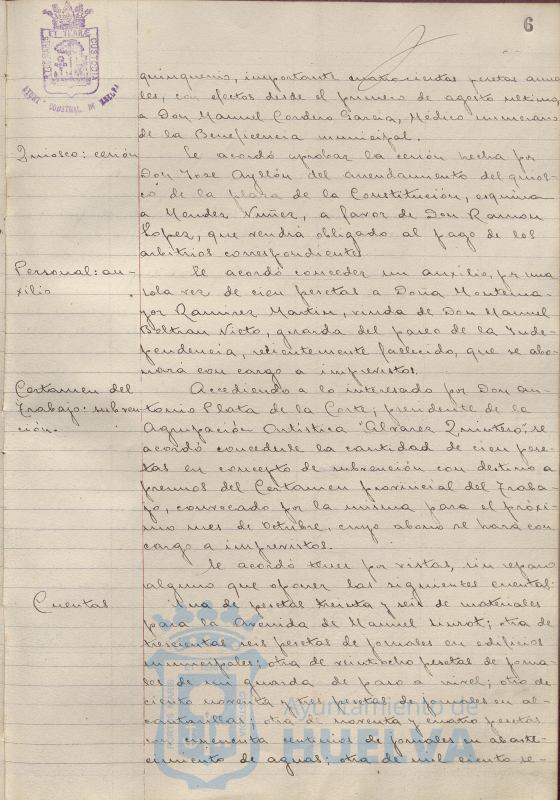 6
quinquenio, importante cuatrocientas pesetas anua-
les, con efectos desde el primero de agosto último,
a Don Manuel Cordero García, Médico numerario
de la Beneficencia municipal.
Quiosco: cesión
Se acordó aprobar la cesión hecha por
Don José Ayllón del arrendamiento del quios-
co de la plaza de la Constitución, esquina
a Mendez Nuñez, a favor de Don Ramon
Lopez, que vendrá obligado al pago de los
arbitrios correspondientes.
Personal: au-
xilio
Se acordó conceder un auxilio, por una
sola vez de cien pesetas a Doña Montema-
yor Ramirez Martin, viuda de Don Manuel
Beltran Nieto, guarda del paseo de la Inde-
pendencia, recientemente fallecido, que se abo-
nará con cargo a imprevistos.
Certamen del
Trabajo: subven-
ción.
Accediendo a lo interesado por Don An-
tonio Plata de la Corte, presidente de la
Agrupación Artística "Alvarez Quintero", se
acordó concederle la cantidad de cien pese-
tas en concepto de subvención con destino a
premios del Certamen provincial del Traba-
jo, convocado por la misma para el próxi-
mo mes de Octubre, cuyo abono se hará con
cargo a imprevistos.
Se acordó tener por vistas, sin reparo
alguno que oponer las siguientes cuentas:
Cuentas
Una de pesetas treinta y seis de materiales
para la Avenida de Manuel Siurot; otra de
trescientas seis pesetas de jornales en edificios
municipales; otra de veintiocho pesetas de jorna-
les de un guarda de paso a nivel; otra de
ciento noventa y tres pesetas de jornales en al-
cantarillas; otra de noventa y cuatro pesetas
con cincuenta centimos de jornales en abaste-
cimiento de aguas; otra de mil ciento se-
Ayuntamiento de
HUELVA